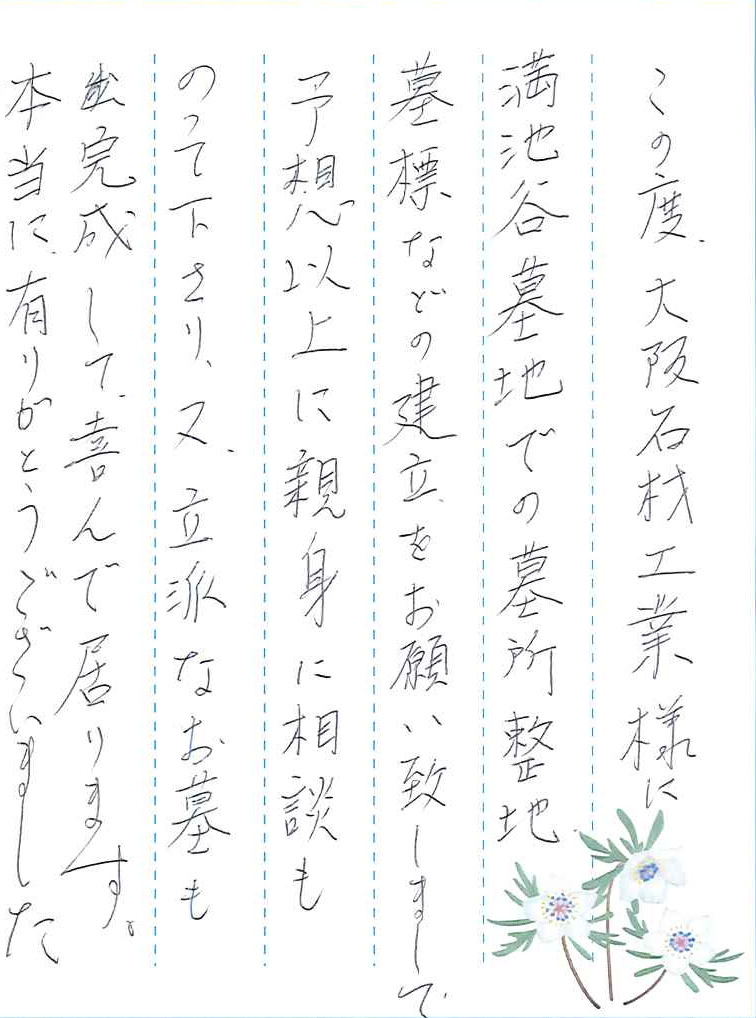 この度、大阪石材工業様に
満池谷墓地での墓所整地
墓標などの建立をお願い致しまして
予想以上に親身に相談も
のって下さり、又、立派なお墓も
完成して、喜んで居ります。
本当に、有りがとうございました